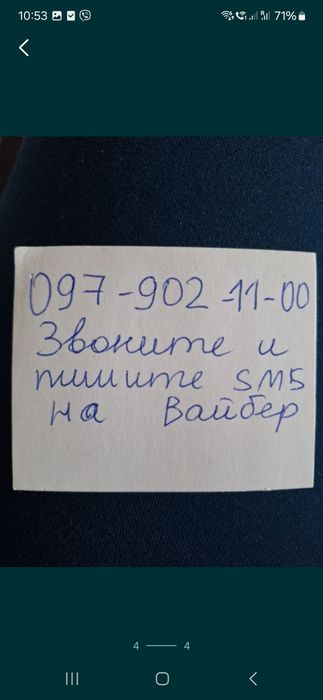 10:53
71%
097-902-11-00
Звоните и
пишите SMS
на Вайбер
4 — 4